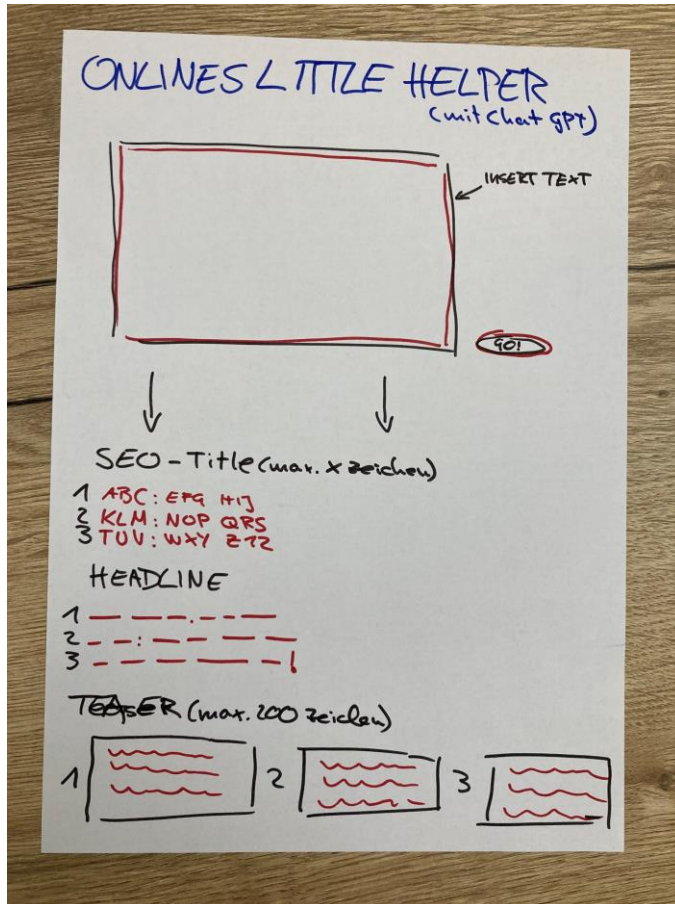 ONLINES LITTLE HELPER
(mit Chat gpt)
INSERT TEXT
GO!
SEO-Title (max. x zeichen)
1 ABC: EFG HIJ
2 KLM: NOP QRS
3 TUV: WXY Z12
HEADLINE
1
2
3
TEASER (max. 200 zeichen)
1 2 3